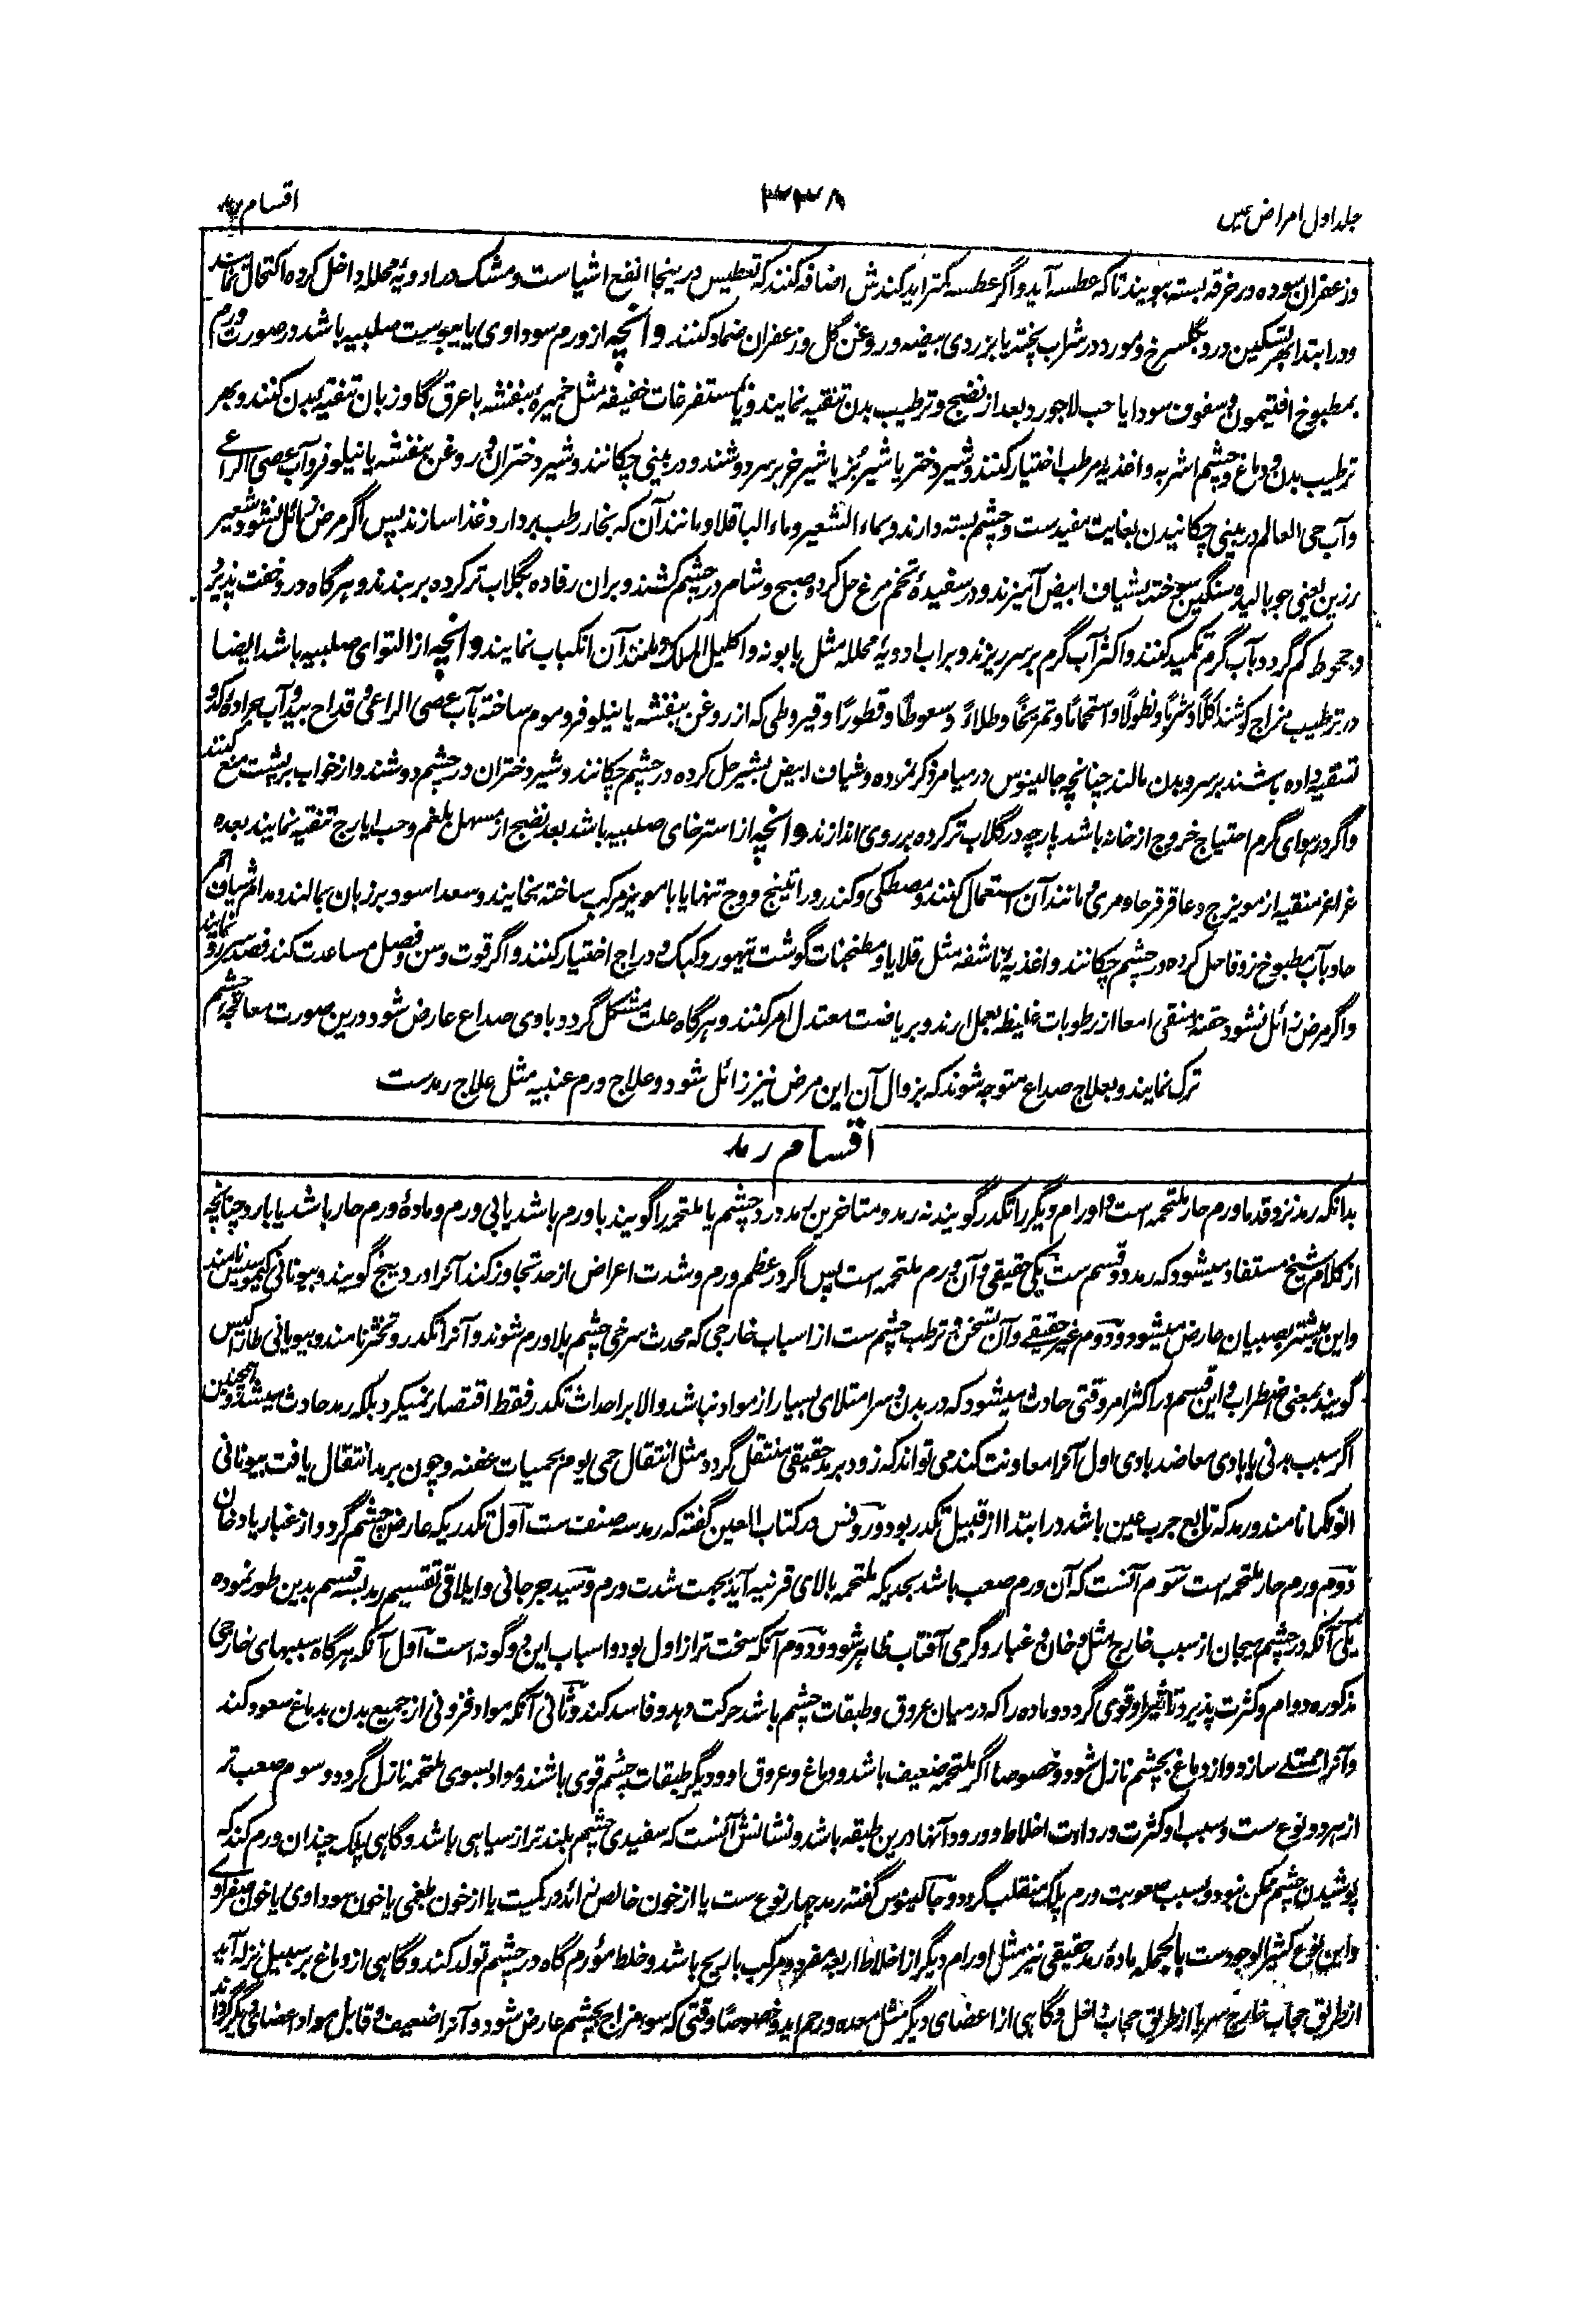 جلد اول امراض عین
۳۳۸
اقسام رمد
وزعفران سوده در خرقه بسته ببویند تا که عطسه آید و اگر عطسه کمتر آید کندش اضافه کنند که تعطیس درینجا انفع اشیاست و مشک در ادویهٔ محلله داخل کرده اکتحال نمایند
و در ابتدا بهر تسکین درد بگلسرخ و مورد در شراب پخته یا بزردی بیضه و روغن گل و زعفران ضماد کنند و انچه از ورم سوداوی یا یبوست صلبیه باشد در صورت ورم
بمطبوخ افتیمون و سفوف سودا یا حب لاجورد بعد از نضج و ترطیب بدن تنقیه نمایند و یا بمستفرغات خفیفه مثل خمیرهٔ بنفشه با عرق گاوزبان تنقیهٔ بدن کنند و بهر
ترطیب بدن و دماغ و چشم اشربه و اغذیه مرطب اختیار کنند و شیر دختر یا شیر بز یا شیر خر بر سر دوشند و در بینی چکانند و شیر دختران و روغن بنفشه یا نیلوفر و آب عصی الراعی
و آب حی العالم در بینی چکانیدن بغایت مفیدست و چشم بسته دارند و بماء الشعیر و ماء الباقلا و مانند آن که بخار رطب بردارد غذا سازند پس اگر مرض زائل نشود شعیر
رزین یعنی جو بالیده سنگین سوخته بشیاف ابیض آمیزند و در سفیدهٔ تخم مرغ حل کرده صبح و شام در چشم کشند و بران رفاده بگلاب تر کرده بربندند و هرگاه درد خفت پذیرد
و جحوظ کم گردد بآب گرم تکمید کنند و اکثر آب گرم بر سر ریزند و براب ادویهٔ محلله مثل بابونه و اکلیل الملک و مانند آن انکباب نمایند و انچه از التوای صلبیه باشد ایضا
در ترطیب مزاج کوشند اکلاً و شرباً و نطولاً و استحماماً و تمریخاً و طلاءً و سعوطاً و قطوراً و قیروطی که از روغن بنفشه یا نیلوفر و موم ساخته بآب عصی الراعی و قداح بید و آب جراده کدو
تسقیه داده باشند بر سر و بدن مالند چنانچه جالینوس در میامر ذکر نموده و شیاف ابیض بشیر حل کرده در چشم چکانند و شیر دختران در چشم دوشند و از خواب بر پشت منع کنند
و اگر در هوای گرم احتیاج خروج از خانه باشد پارچه در گلاب تر کرده بر روی اندازند و انچه از استرخای صلبیه باشد بعد نضج از مسهل بلغم و حب ایارج تنقیه نمایند بعده
غراغر منقیه از مویزج و عاقرقرحا و مری و مانند آن استعمال کنند و مصطکی و کندر و راتینج و وج تنها یا با مویز مرکب ساخته بخایند و سعد اسود بر زبان بمالند و مدام شیاف احمر
حاد بآب مطبوخ زوفا حل کرده در چشم چکانند و اغذیهٔ ناشفه مثل قلایا و مطنجنات گوشت تیهو و کبک و دراج اختیار کنند و اگر قوت و سن و فصل مساعدت کند فصد سررو نمایند
و اگر مرض زائل نشود حقنهٔ منقی امعا از رطوبات غلیظه بعمل ارند و بریاضت معتدل امر کنند و هرگاه علت مشکل گردد و باوی صداع عارض شود درین صورت معالجهٔ چشم
ترک نمایند و بعلاج صداع متوجه شوند که بزوال آن این مرض نیز زائل شود و علاج ورم عنبیه مثل علاج رمدست
اقسام رمد
بدانکه رمد نزد قدما ورم حار ملتحمه است و اورام دیگر را تکدر گویند نه رمد و متاخرین رمد درد چشم یا ملتحمه را گویند با ورم باشد یا بی ورم و مادهٔ ورم حار باشد یا بارد چنانچه
از کلام شیخ مستفاد میشود که رمد دو قسم ست یکی حقیقی و آن ورم ملتحمه است پس اگر در عظم ورم و شدت اعراض از حد تجاوز کند آنرا وردینج گویند و بیونانی کیموسیس نامند
و این بیشتر بصبیان عارض میشود و دوم غیر حقیقی و آن تسخن و ترطب چشم ست از اسباب خارجی که محدث سرخی چشم بلا ورم شوند و آنرا تکدر و تخثر نامند و بیونانی طارکسیس
گویند بمعنی اضطراب و این قسم در اکثر امر وقتی حادث میشود که در بدن و سر امتلای بسیار از مواد نباشد والا بر احداث تکدر فقط اقتصار نمیکرد بلکه رمد حادث میشد و همچنین
اگر سبب بدنی یا بادی معاضد بادی اول آنرا معاونت کند می تواند که زود برمد حقیقی منتقل گردد مثل انتقال حمی یوم بحمیات عفنه و چون برمد انتقال یافت بیونانی
نامند و رمد که تابع جرب عین باشد در ابتدا از قبیل تکدر بود و روفس در کتاب العین گفته که رمد سه صنف ست اول تکدریکه عارض چشم گردد از غبار یا دخان
دوم ورم حار ملتحمه است سوم آنست که آن ورم صعب باشد بحدیکه ملتحمه بالای قرنیه آید بجهت شدت ورم و سید جرجانی و ایلاقی تقسیم رمد بسه قسم بدین طور نموده
یکی آنکه در چشم هیجان از سبب خارج مثل دخان و غبار و گرمی آفتاب ظاهر شود و دوم آنکه سخت تر از اول بود و اسباب این دو گونه است اول آنکه هرگاه سببهای خارجی
مذکوره دوام و کثرت پذیرد تاثیر او قوی گردد و ماده را که در میان عروق و طبقات چشم باشد حرکت دهد و فاسد کند و ثانی آنکه مواد فزونی از جمیع بدن بدماغ صعود کند
و آنرا ممتلی سازد و از دماغ بچشم نازل شود و خصوصا اگر ملتحمه ضعیف باشد و دماغ و عروق او و دیگر طبقات چشم قوی باشند و مواد بسوی ملتحمه نازل گردد و سوم صعب تر
از هر دو نوع ست و سبب او کثرت و ردادت اخلاط و ورود آنها درین طبقه باشد و نشانش آنست که سفیدی چشم بلندتر از سیاهی باشد و گاهی پلک چندان ورم کند که
پوشیدن چشم ممکن نبود و بسبب صعوبت ورم پلک منقلب گردد و جالینوس گفته رمد چهار نوع ست یا از خون خالص زائد در کمیت یا از خون بلغمی یا خون سوداوی یا خون صفراوی
و این نوع کثیر الوجودست بالجمله مادهٔ رمد حقیقی نیز مثل اورام دیگر از اخلاط اربعه مفرد و مرکب با ریح باشد و خلط مؤرم گاه در چشم تولد کند و گاهی از دماغ بر سبیل نزله آید
از طریق حجاب خارج سر یا از طریق حجاب داخل و گاهی از اعضای دیگر مثل معده و رحم آید و خصوصاً وقتی که سوء مزاج بچشم عارض شود و آنرا ضعیف و قابل مواد اعضای دیگر گرداند